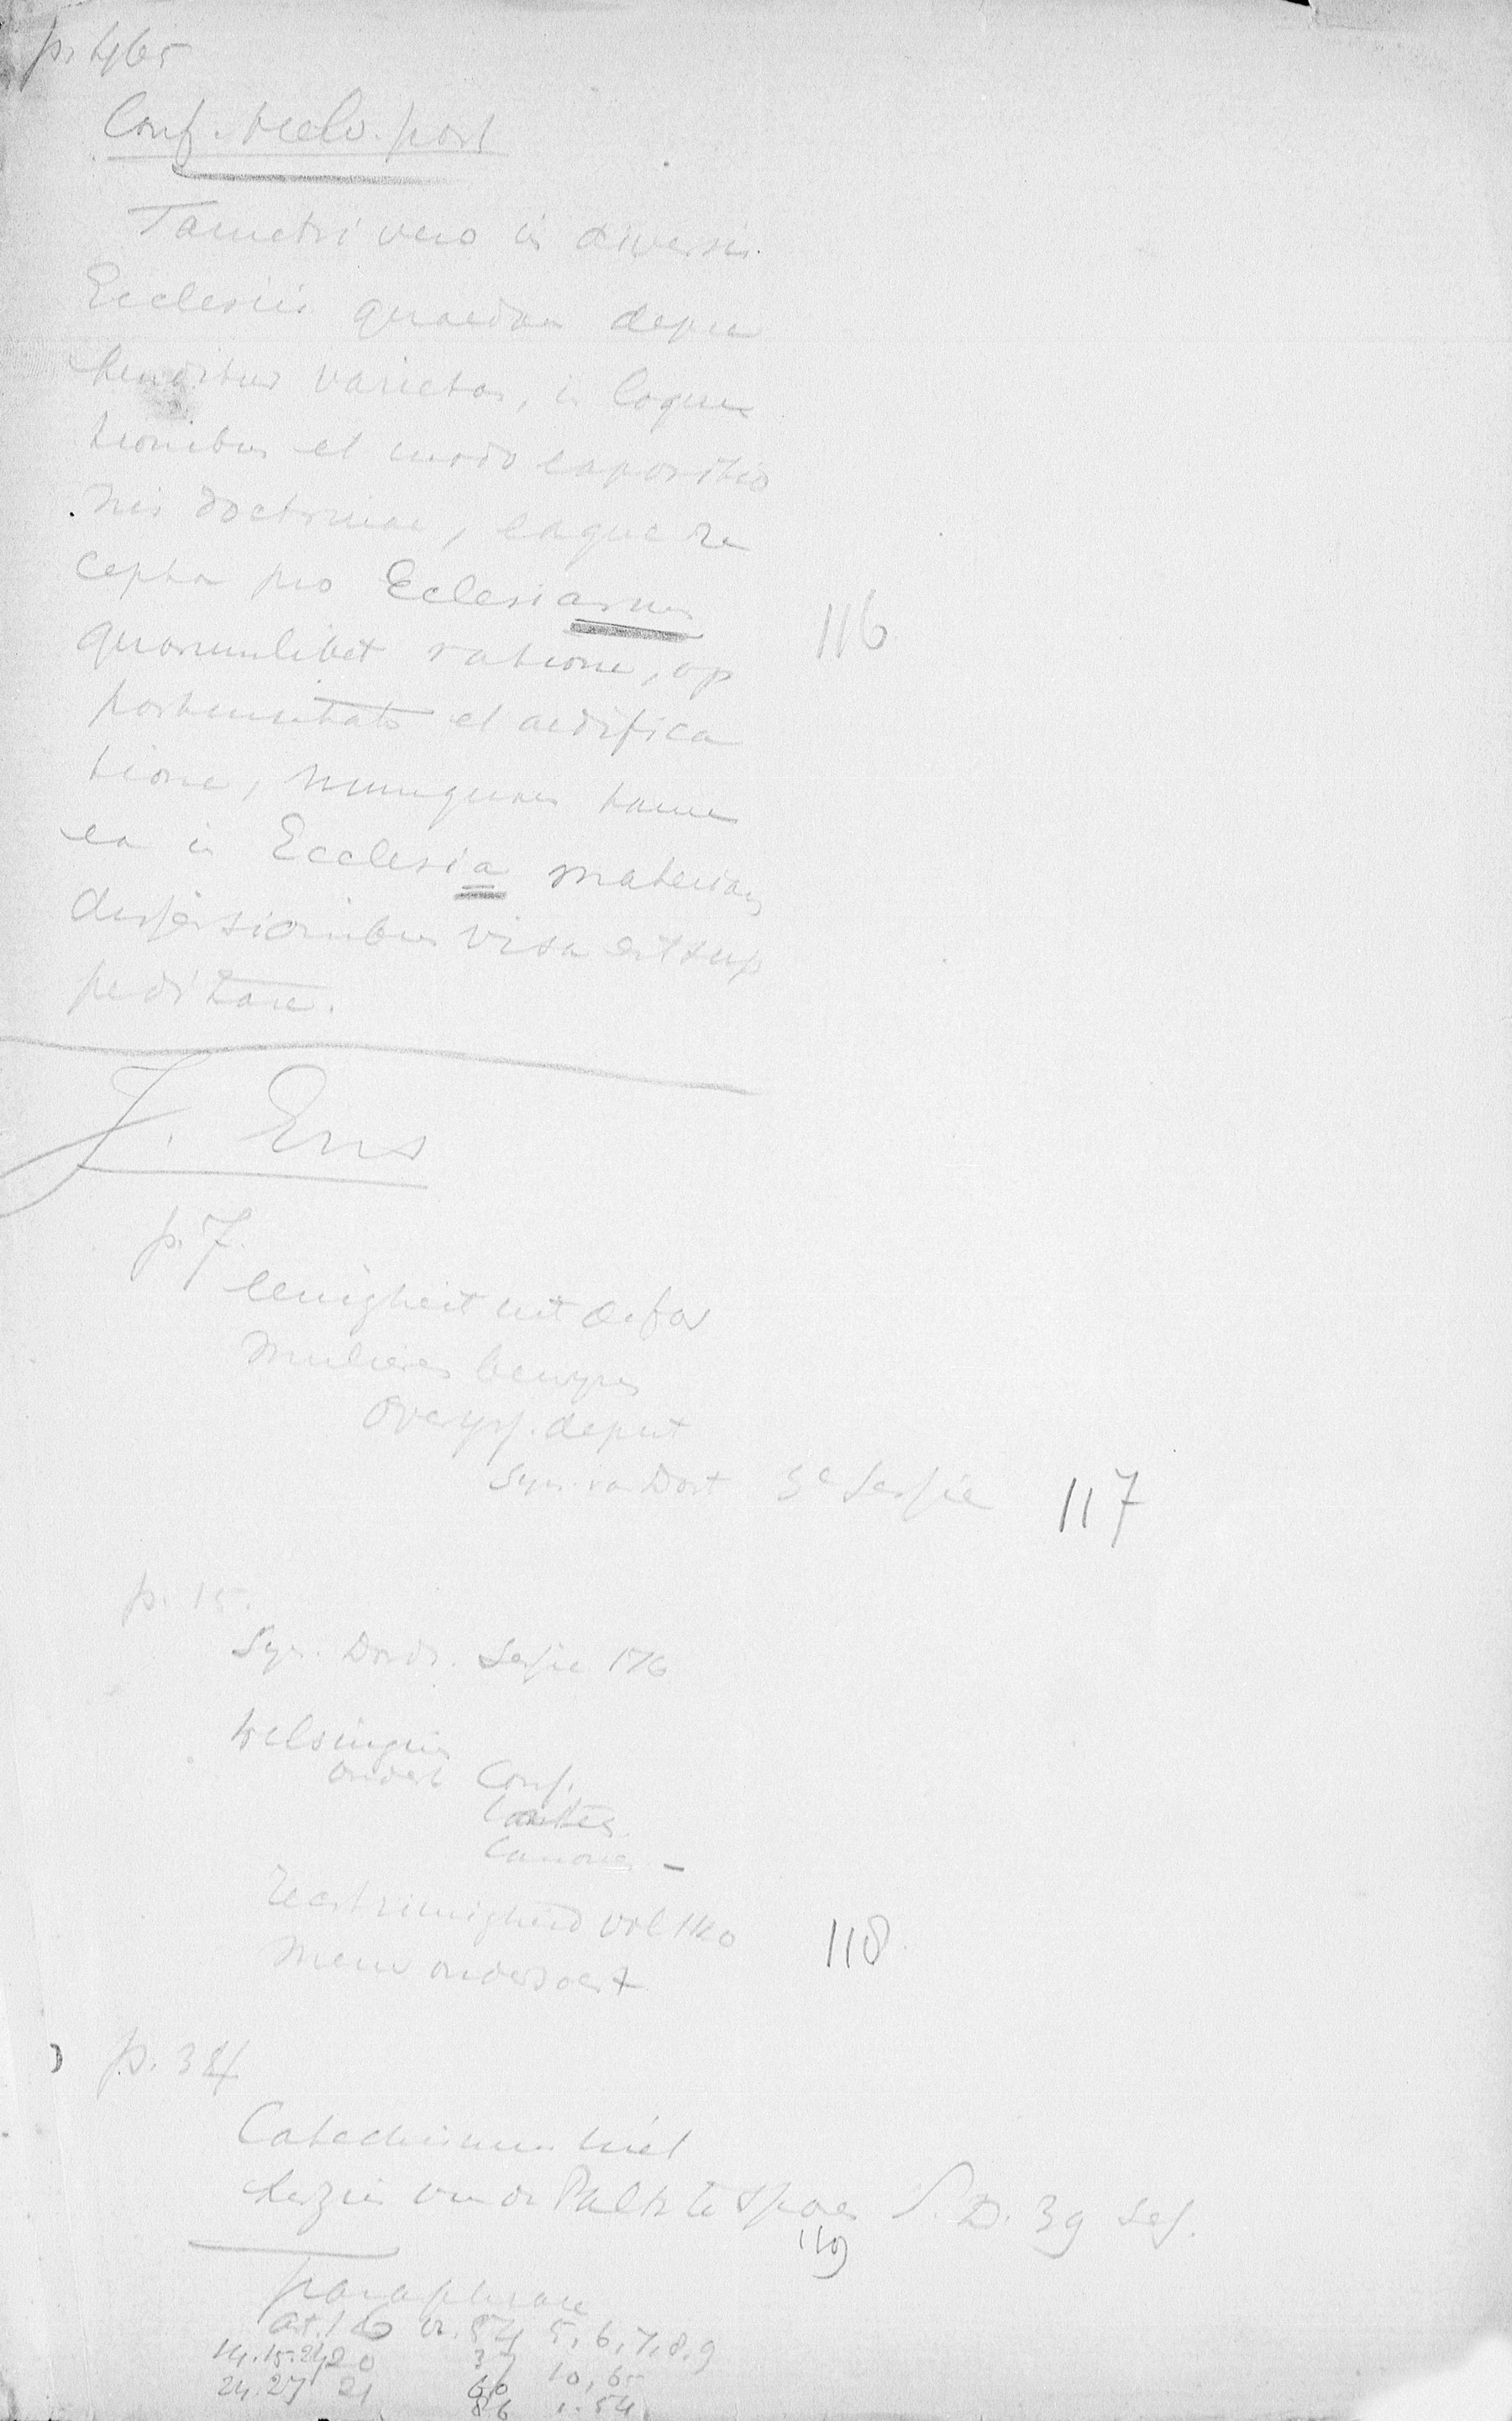 p. 465
Conf. Helv. post
Tametsi vero in diversis
Ecclesiis quaedam depre
henditur varietas, in loquu
tionibus et modo expositio
nis doctrinae, eaque re
cepta pro Eclesiarum
quarumlibet ratione, op
portunitate et aedifica
tione, nunquam tamen
ea in Ecclesia materiam
dissensionibus visa est sup
peditare.
116
J. Ens
p. 7.
eenigheit uit de for
mulieren bewezen
Overys. deput
Syn. van Dort 3e Sessie
117
p. 15.
Syn. Dordr. Sessie 176
Welsingius
ondert Conf.
Cateč.
Canones -
Rechtzinnigheid vol
118
p. 34
Catechismus niet
van de Paltz te S. D. 39 Ses.
119
paraphrase
art. 16 5, 6, 7, 8, 9
14. 15. 20 37 10, 65
24. 27 21 60
86 54